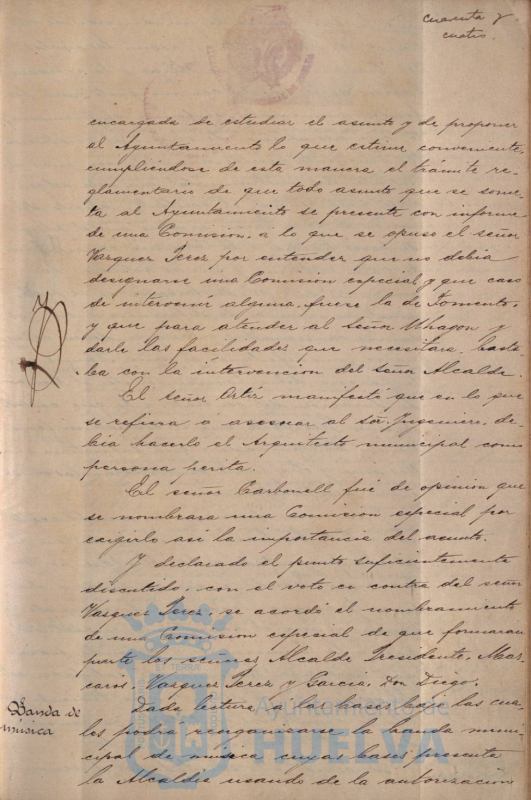 cuarenta y
cuatro.
encargada de estudiar el asunto y de proponer
al Ayuntamiento lo que estime conveniente,
cumpliéndose de esta manera el trámite re-
glamentario de que todo asunto que se some-
ta al Ayuntamiento se presente con informe
de una Comisión, a lo que se opuso el señor
Vazquez Perez por entender que no debia
designarse una Comisión especial y que caso
de intervenir alguna, fuese la de Fomento,
y que para atender al Señor Uhagon y
darle las facilidades que necesitara, basta-
ba con la intervención del Señor Alcalde.
El señor Ortiz manifestó que en lo que
se refiera a asesorar al Sor. Ingeniero, de-
bia hacerlo el Arquitecto municipal como
persona perita.
El señor Carbonell fué de opinión que
se nombrara una Comision especial por
exigirlo asi la importancia del asunto.
Y declarado el punto suficientemente
discutido, con el voto en contra del señor
Vazquez Perez, se acordó el nombramiento
de una Comision especial de que formaran
parte los señores Alcalde Presidente, Mas-
caros, Vazquez Perez y Garcia, Don Diego.
Banda de
música
Dada lectura a las bases bajo las cua-
les podra reorganizarse la banda muni-
cipal de musica cuyas bases presenta
la Alcaldia usando de la autorización
Ayuntamiento de
HUELVA